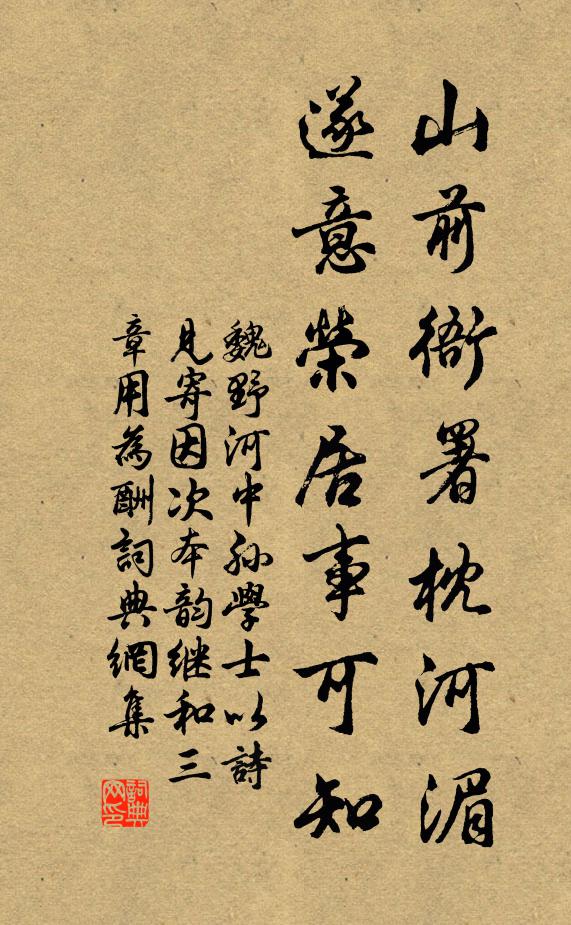 山前衙署枕河湄
遂意榮居事可知
魏野河中孙學士以詩
見寄因次本韵继和三
章用為酬詞典網集
詞典网印